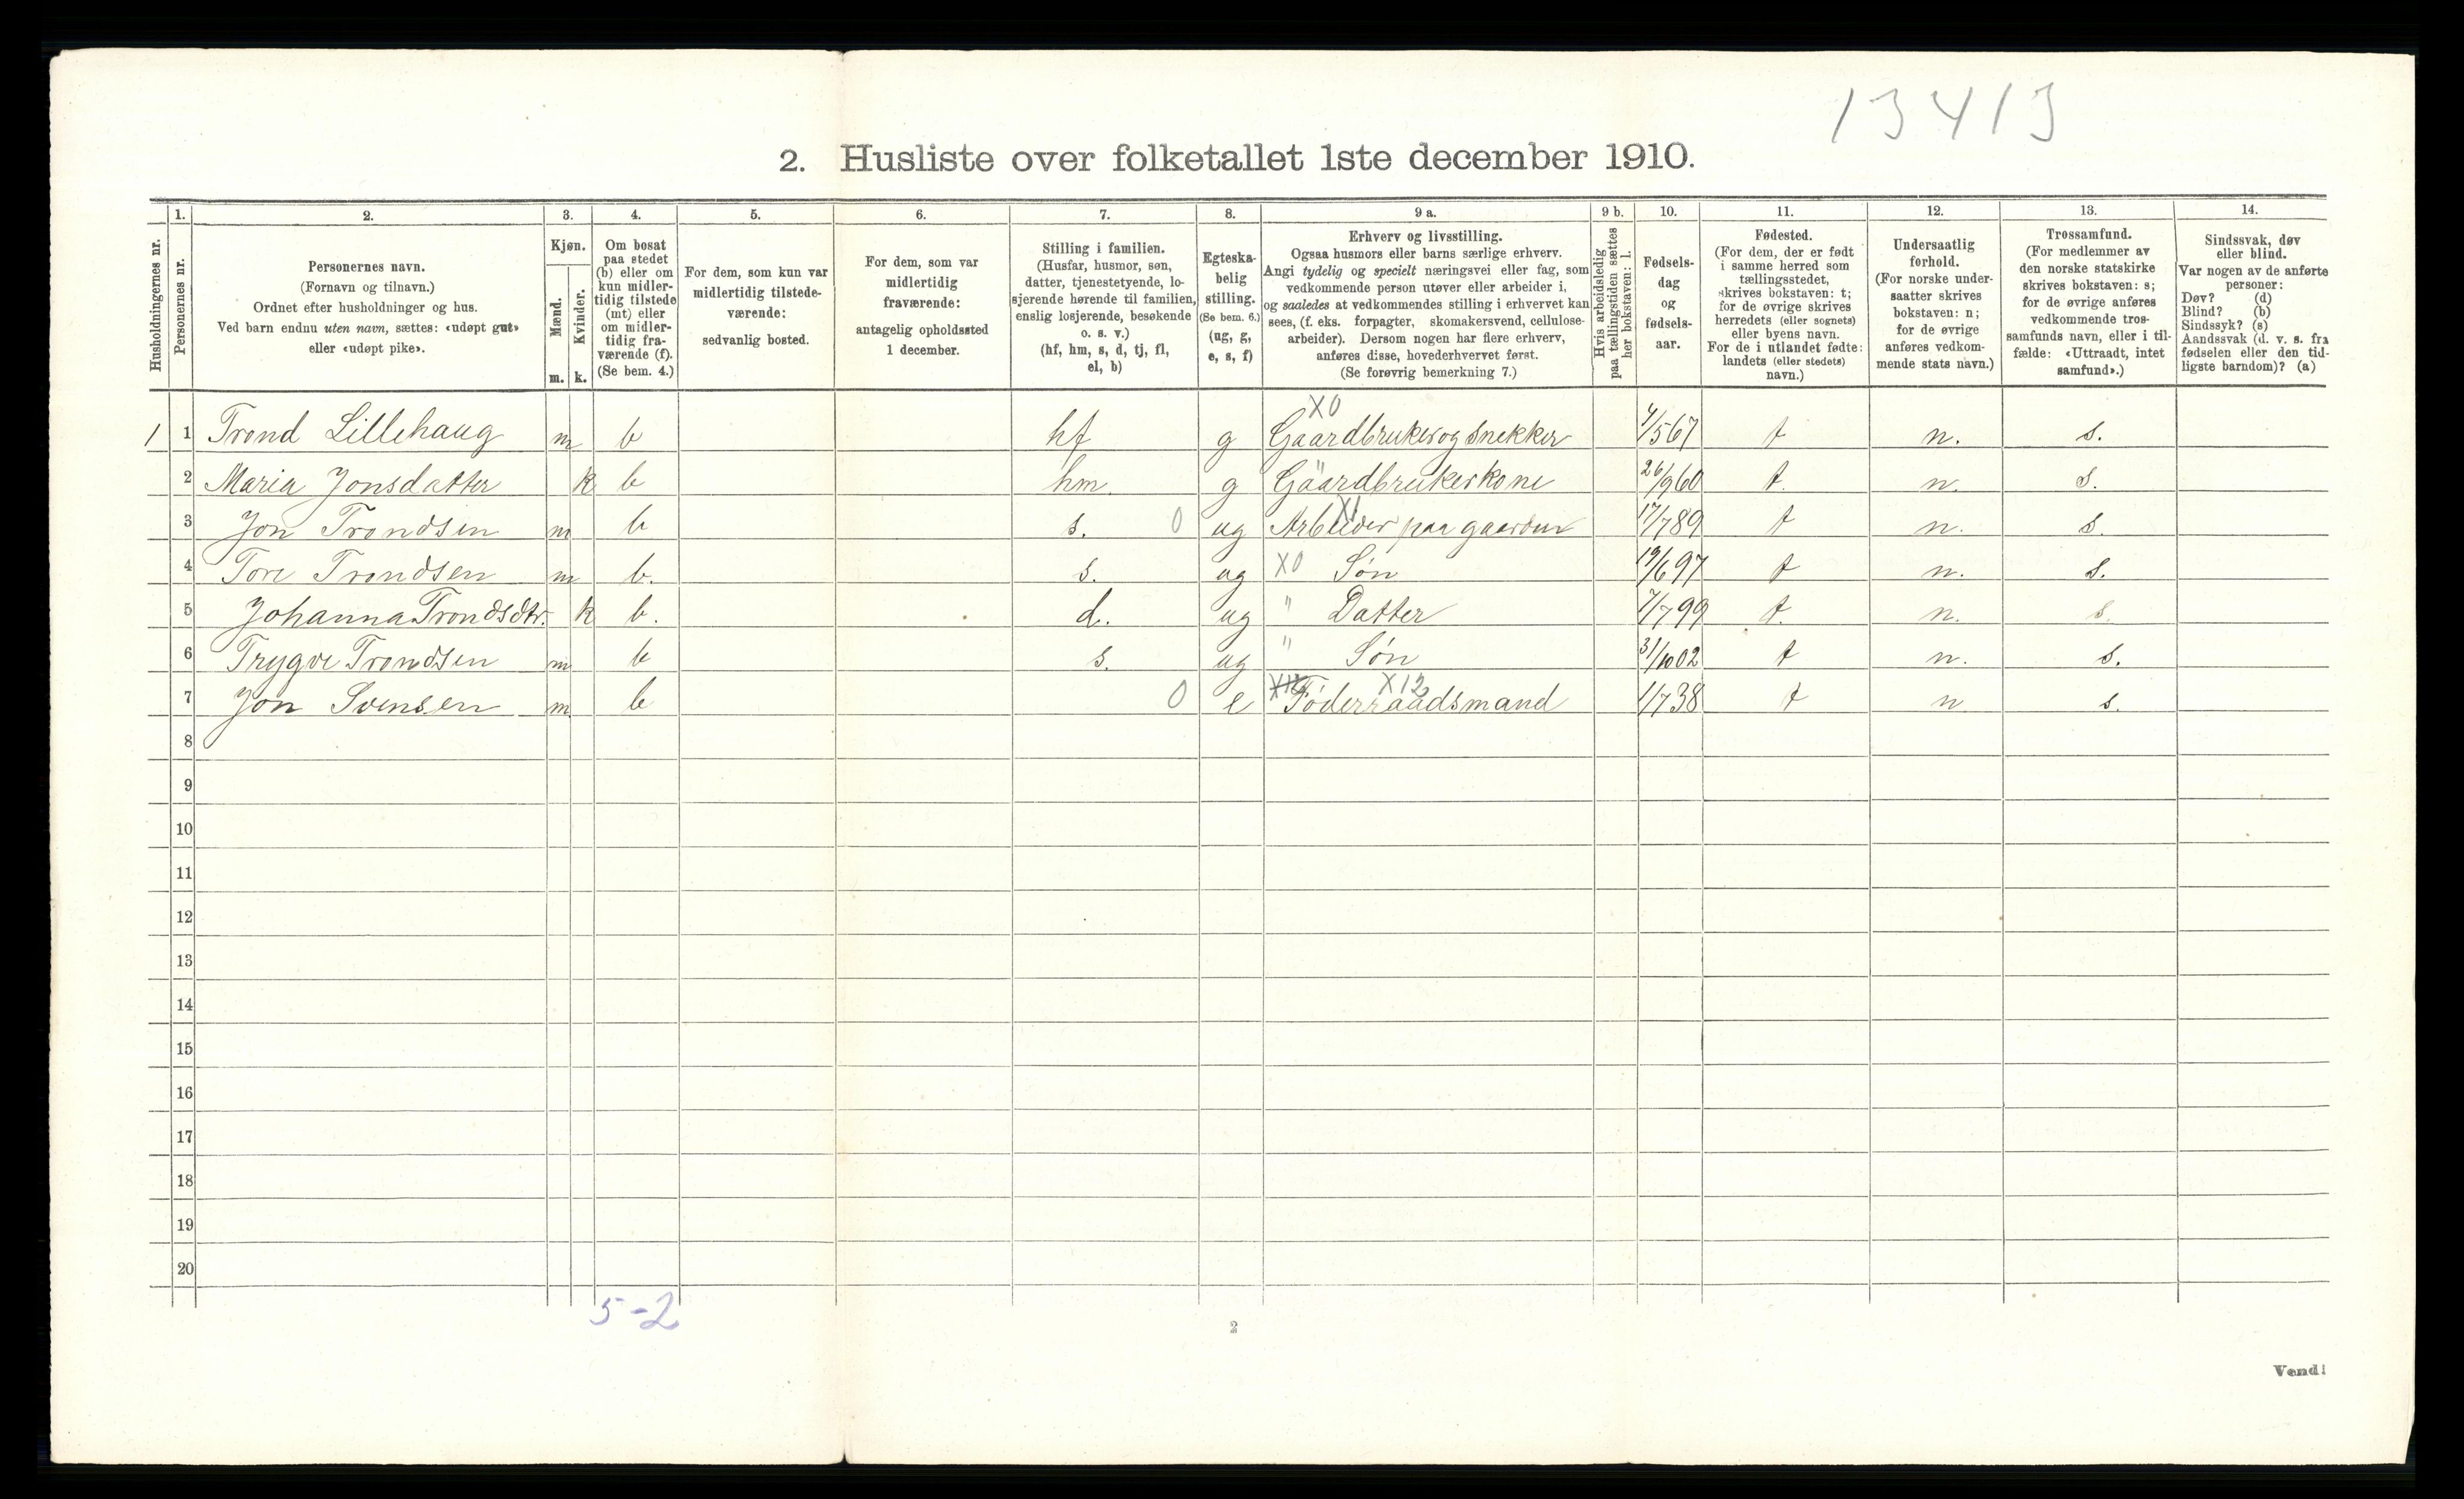 13413
2. Husliste over folketallet 1ste december 1910.
Husholdningernes nr.
1.
Personernes nr.
2.
Personernes navn.
(Fornavn og tilnavn.)
Ordnet efter husholdninger og hus.
Ved barn endnu uten navn, sættes: «udøpt gut»
eller «udøpt pike».
3.
Kjøn.
Mænd.
m.
Kvinder.
k.
4.
Om bosat
paa stedet
(b) eller om
kun midler-
tidig tilstede
(mt) eller
om midler-
tidig fra-
værende (f).
(Se bem. 4.)
5.
For dem, som kun var
midlertidig tilstede-
værende:
sedvanlig bosted.
6.
For dem, som var
midlertidig
fraværende:
antagelig opholdssted
1 december.
7.
Stilling i familien.
(Husfar, husmor, søn,
datter, tjenestetyende, lo-
sjerende hørende til familien,
enslig losjerende, besøkende
o. s. v.)
(hf, hm, s, d, tj, fl,
el, b)
8.
Egteska-
belig
stilling.
(Se bem. 6.)
(ug, g,
e, s, f)
9 a.
Erhverv og livsstilling.
Ogsaa husmors eller barns særlige erhverv.
Angi tydelig og specielt næringsvei eller fag, som
vedkommende person utøver eller arbeider i,
og saaledes at vedkommendes stilling i erhvervet kan
sees, (f. eks. forpagter, skomakersvend, cellulose-
arbeider). Dersom nogen har flere erhverv,
anføres disse, hovederhvervet først.
(Se forøvrig bemerkning 7.)
9 b.
Hvis arbeidsledig
paa tællingstiden sættes
her bokstaven: l.
10.
Fødsels-
dag
og
fødsels-
aar.
11.
Fødested.
(For dem, der er født
i samme herred som
tællingsstedet,
skrives bokstaven: t;
for de øvrige skrives
herredets (eller sognets)
eller byens navn.
For de i utlandet fødte:
landets (eller stedets)
navn.)
12.
Undersaatlig
forhold.
(For norske under-
saatter skrives
bokstaven: n;
for de øvrige
anføres vedkom-
mende stats navn.)
13.
Trossamfund.
(For medlemmer av
den norske statskirke
skrives bokstaven: s;
for de øvrige anføres
vedkommende tros-
samfunds navn, eller i til-
fælde: «Uttraadt, intet
samfund».)
14.
Sindssvak, døv
eller blind.
Var nogen av de anførte
personer:
Døv? (d)
Blind? (b)
Sindssyk? (s)
Aandssvak (d. v. s. fra
fødselen eller den tid-
ligste barndom)? (a)
X0
1 1 Trond Lillehaug m b hf g Gaardbruker og Snekker 4/5 67 t n. s.
2 Maria Jonsdatter k b hm. g " Gaardbrukerkone 26/9 60 t. n. s.
3 Jon Trondsen m b s. 0 ug X1 Arbeider paa gaarden 17/7 89 t n. s.
4 Tore Trondsen m b. s. ug X0 Søn 19/6 97 t n. s.
5 Johanna Trondsdtr. k b. d. ug " Datter 7/7 99 t. n. s.
6 Trygve Trondsen m b s. ug " Søn 31/10 02 t n. s.
7 Jon Svensen m. b 0 e X12 Føderraadsmand 1/7 38 t n s.
8
9
10
11
12
13
14
15
16
17
18
19
20
5-2
2
Vend!